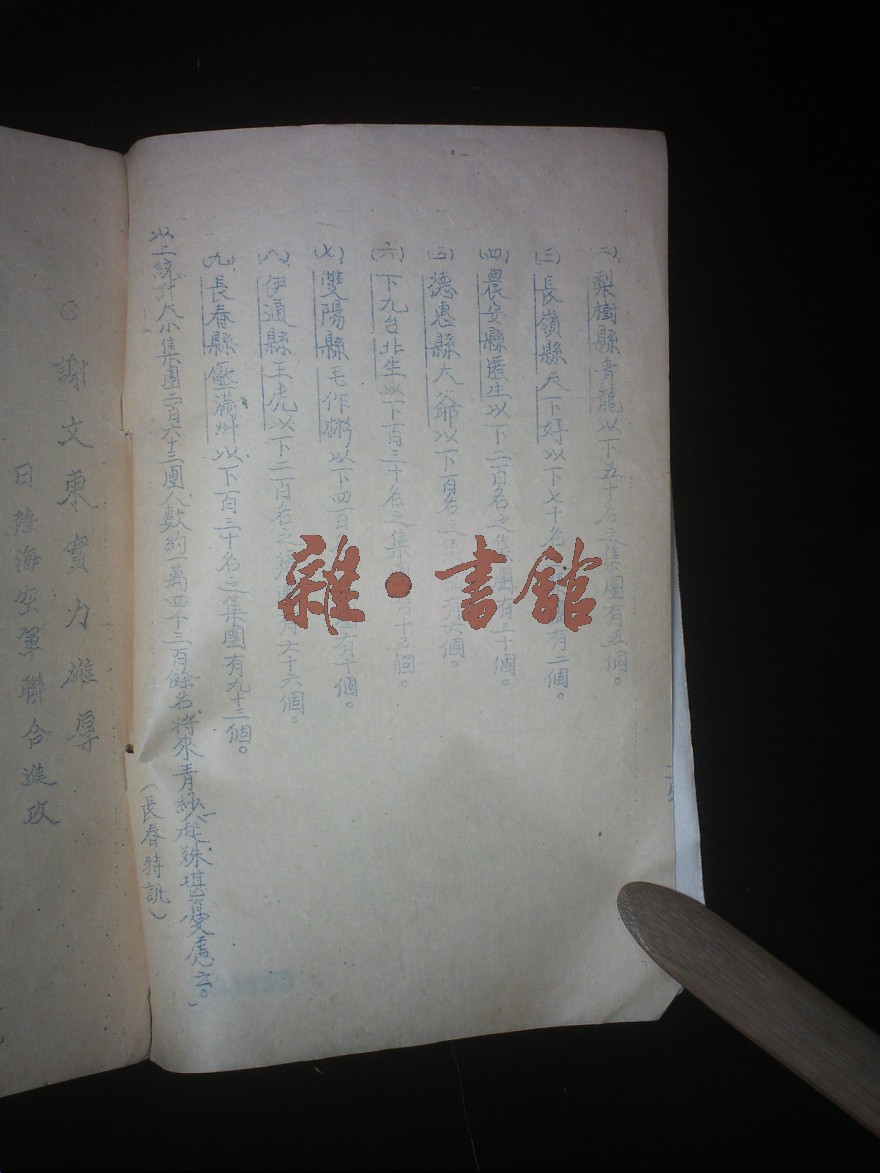 (二)梨樹縣青龍以下五十名之集團有五個。
(三)長嶺縣天下好以下七十名有二個。
(四)農安縣匿生以下二百名之集團有三十個。
(五)德惠縣大爺以下百名之集六個。
(六)下九台北生以下百三十名之集團有十五個。
(七)雙陽縣毛作彬以下四百有十個。
(八)伊通縣王虎以下二百名之六十六個。
(九)長春縣壓滿州以下百三十名之集團有九十三個。
以上統計大小集團二百六十三團人數約一萬四千三百餘名將來青紗起殊堪憂慮云。
(長春特訊)
謝文東實力雄厚
日陸海空軍聯合進攻
雜·書館